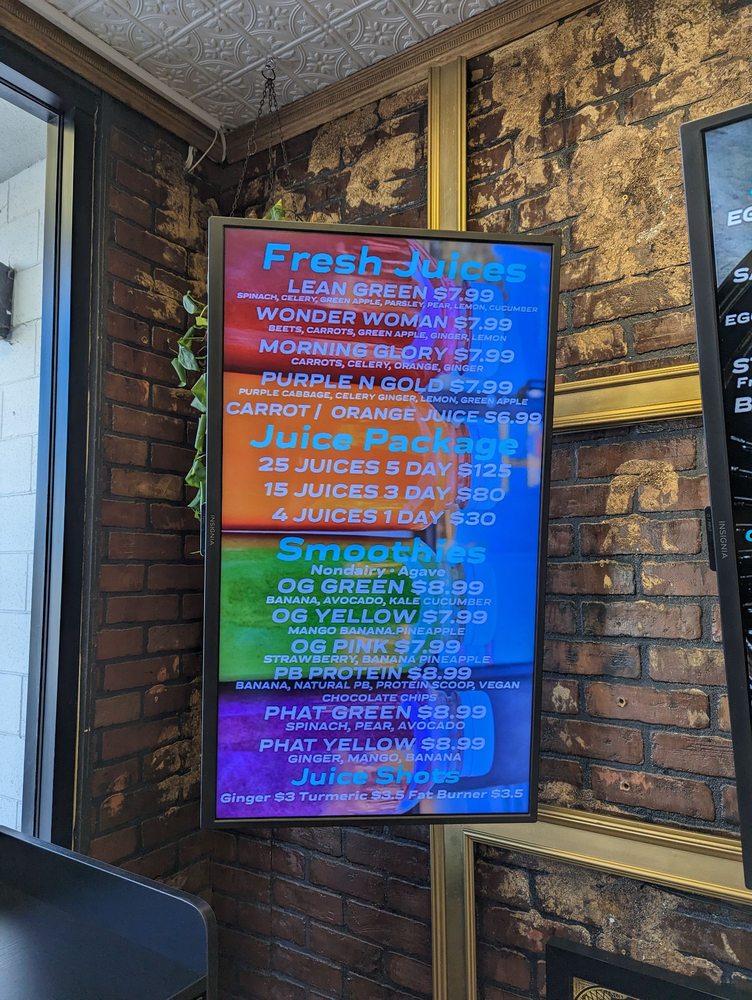 Fresh Juices
LEAN GREEN $7.99
SPINACH, CELERY, GREEN APPLE, PARSLEY, PEAR, LEMON, CUCUMBER
WONDER WOMAN $7.99
BEETS, CARROTS, GREEN APPLE, GINGER, LEMON
MORNING GLORY $7.99
CARROTS, CELERY, ORANGE, GINGER
PURPLE N GOLD $7.99
PURPLE CABBAGE, CELERY GINGER, LEMON, GREEN APPLE
CARROT / ORANGE JUICE $6.99
Juice Package
25 JUICES 5 DAY $125
15 JUICES 3 DAY $80
4 JUICES 1 DAY $30
Smoothies
Nondairy • Agave
OG GREEN $8.99
BANANA, AVOCADO, KALE CUCUMBER
OG YELLOW $7.99
MANGO BANANA,PINEAPPLE
OG PINK $7.99
STRAWBERRY, BANANA PINEAPPLE
PB PROTEIN $8.99
BANANA, NATURAL PB, PROTEIN SCOOP, VEGAN
CHOCOLATE CHIPS
PHAT GREEN $8.99
SPINACH, PEAR, AVOCADO
PHAT YELLOW $8.99
GINGER, MANGO, BANANA
Juice Shots
Ginger $3 Turmeric $3.5 Fat Burner $3.5
INSIGNIA
INSIGNIA